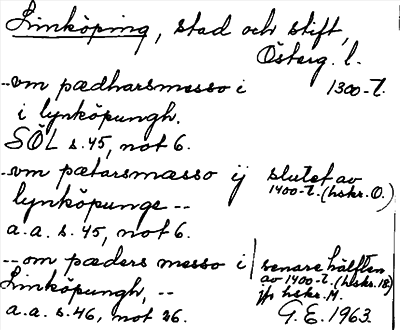 Linköping, stad och stift,
Österg. l.
--om pædharsmesso i 1300-t.
i lynköpungh.
SÖL s.45, not 6.
--om pætarsmæsso ij slutet av
1400-t. (hskr. O.)
lynköpunge --
a.a. s.45, not 6.
-- om pæders messo i senare hälften
av 1400-t. (hskr. 18)
Linköpungh, -- jfr hskr. M.
a.a. s.46, not 26. G.E. 1963.